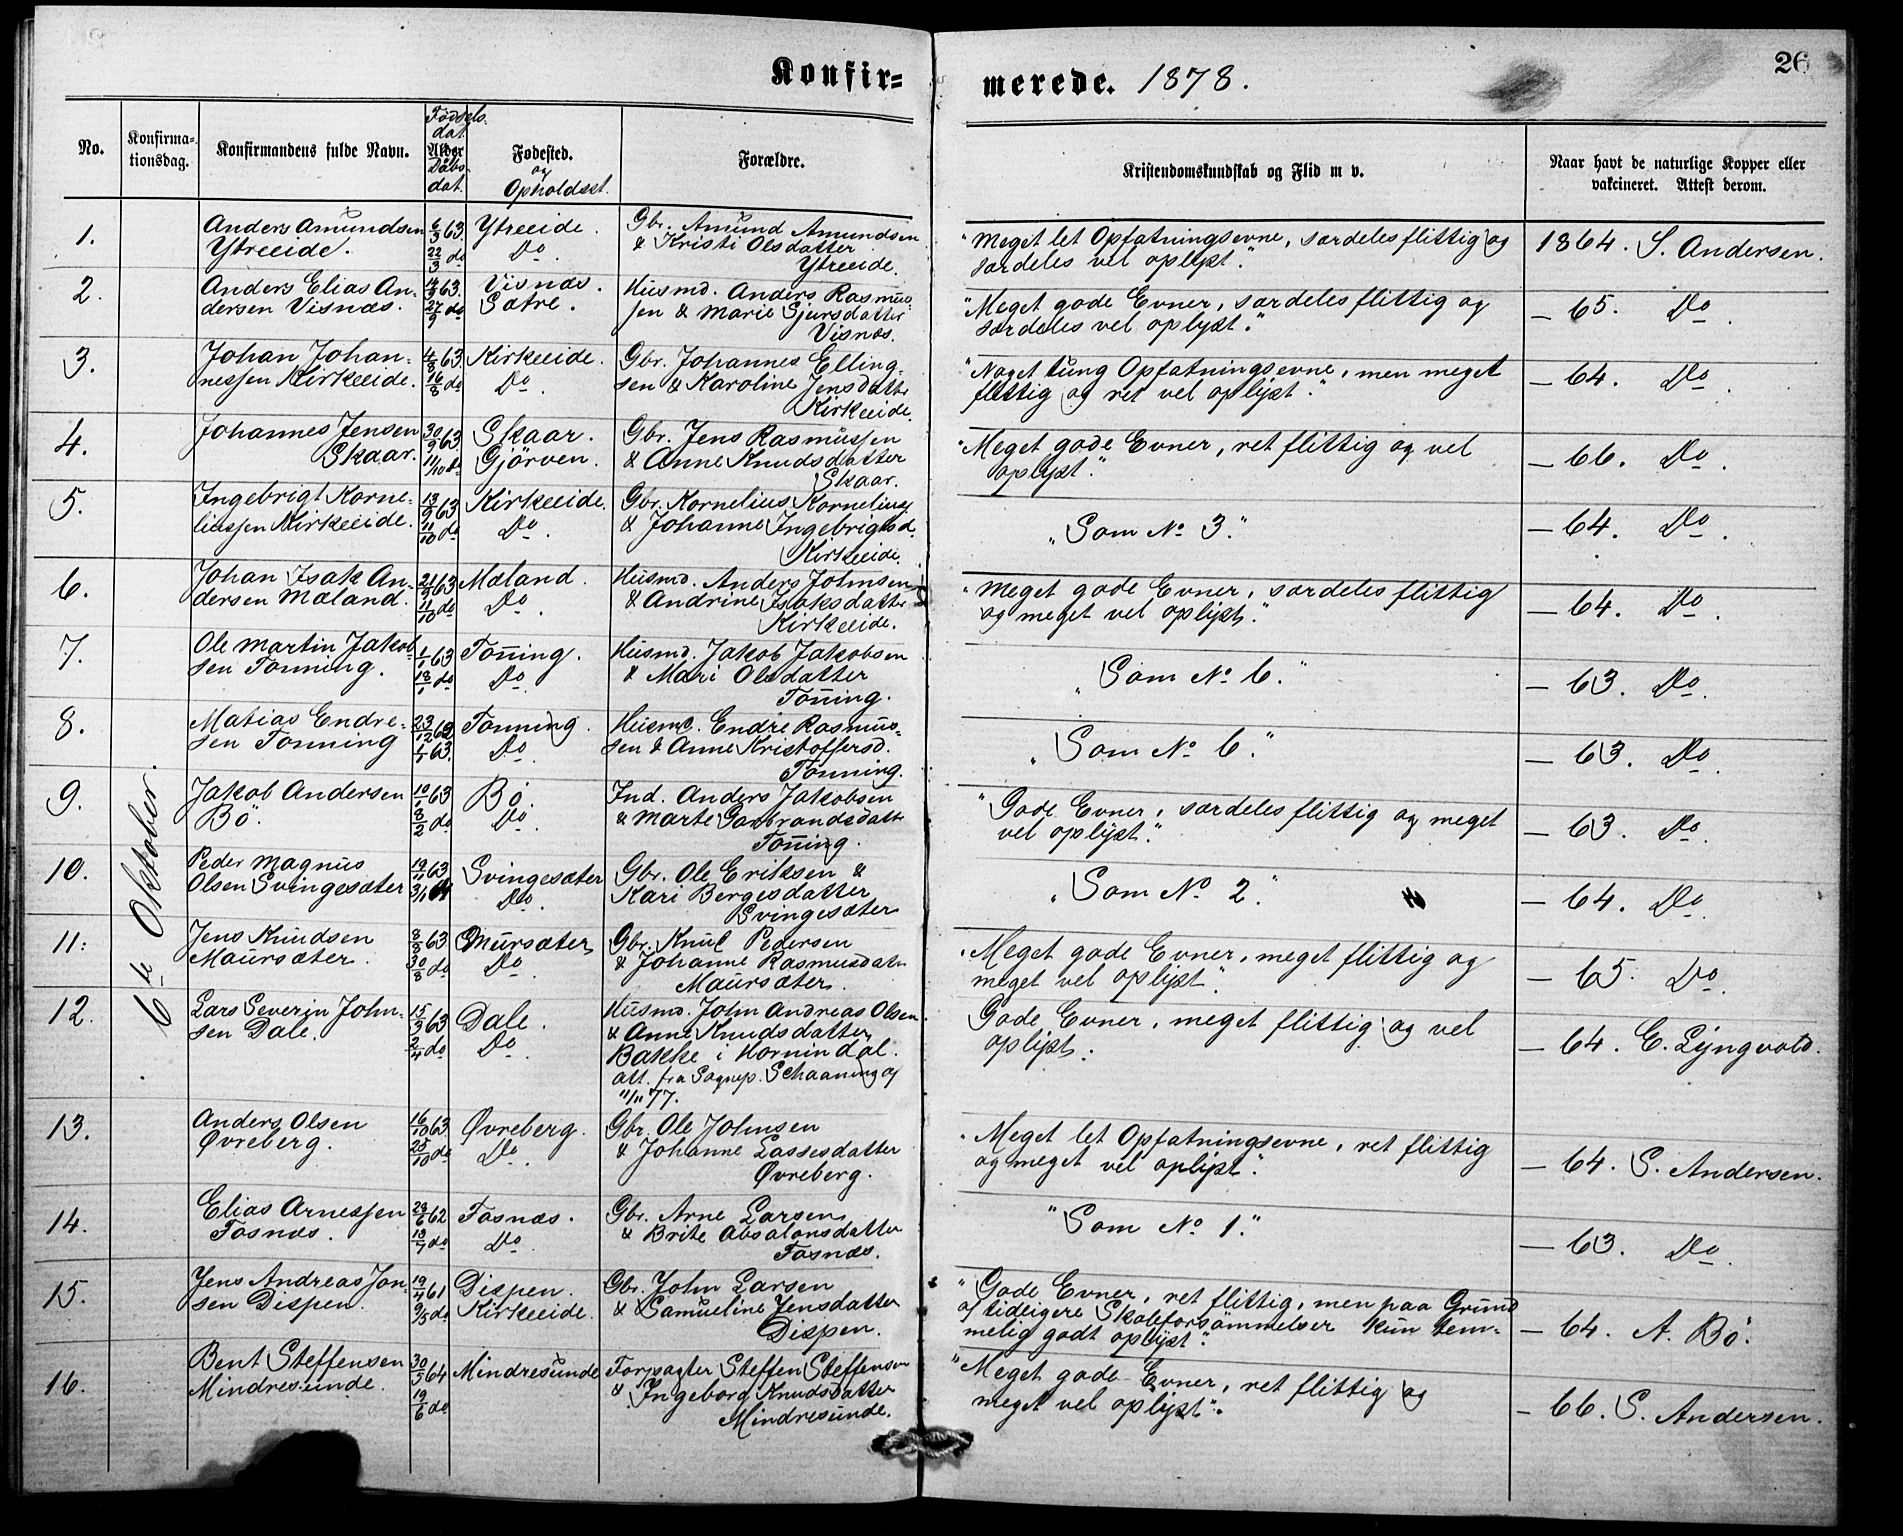 Konfir=
merede. 1878.
26
No.
Konfirma-
tionsdag.
Konfirmandens fulde Navn.
Fødsels.
dat.
Alder
Daabs-
dat.
Fødested.
og
Opholdsst.
Forældre.
Kristendomskundskab og Flid m v.
Naar havt de naturlige Kopper eller
vakcineret. Attest derom.
6te Oktober.
1.
Anders Amundsen
Ytreeide.
6/3 63.
22/3 do
Ytreeide.
Do.
Gbr. Amund Amundsen
& Kristi Olsdatter
Ytreeide.
"Meget let Opfatningsevne, særdeles flittig og
særdeles vel oplyst."
1864. S. Andersen.
2.
Anders Elias An-
dersen Visnæs.
63.
27/9 do
Visnæs.
Sætre.
Husmd. Anders Rasmus-
sen & Marie Sjursdatter
Visnæs.
"Meget gode Evner, særdeles flittig og
særdeles vel oplyst."
— 65. Do.
3.
Johan Johan-
nessen Kirkeeide.
4/8 63
16/8 do
Kirkeeide.
Do.
Gbr. Johannes Elling-
sen & Karoline Jensdatter
Kirkeeide.
"Noget tung Opfatningsevne, men meget
flittig og ret vel oplyst."
— 64. Do.
4.
Johannes Jensen
Skaar.
30/9 63
11/10 do
Skaar.
Gjörven.
Gbr. Jens Rasmussen
& Anne Knudsdatter
Skaar.
"Meget gode Evner, ret flittig og vel
oplyst."
— 66. Do.
5.
Ingebrigt Korne-
liussen Kirkeeide.
13/9 63
11/10 do
Kirkeeide.
Do.
Gbr. Kornelius Kornelius
& Johanne Ingebrigtsd.
Kirkeeide.
"Som No 3."
— 64. Do.
6.
Johan Isak An-
dersen Mæland.
63
11/10 do
Mæland.
Do.
Husmd. Anders Johnsen
& Andrine Isaksdatter
Kirkeeide.
"Meget gode Evner, særdeles flittig
og meget vel oplyst."
— 64. Do.
7.
Ole Martin Jakob-
sen Tonning.
1/1 63
18/1 do
Toning.
Do.
Husmd. Jakob Jakobsen
& Mari Olsdatter
Toning.
"Som No 6."
— 63. Do.
8.
Matias Endre-
sen Tonning
23/12 62
1/1 63.
Tonning.
Do.
Husmd. Endre Rasmus-
sen & Anne Kristoffersd.
Tonning.
"Som No 6."
— 63. Do.
9.
Jakob Andersen
Bö.
10/1 63
8/2 do
Bö.
Do.
Ind. Anders Jakobsen
& Marte Gulbrandsdatt
Toning.
"Gode Evner, særdeles flittig og meget
vel oplyst."
— 63. Do.
10.
Peder Magnus
Olsen Svingesæter
19/11 63
3/1 64
Svingesæter
Do.
Gbr. Ole Eriksen &
Kari Bergesdatter
Svingesæter
"Som No 2."
— 64. Do.
11.
Jens Knudsen
Maursæter.
8/8 63
30/8 do
Mursæter
Do.
Gbr. Knut Pedersen
& Johanne Rasmusdatter
Maursæter.
"Meget gode Evner, meget flittig og
meget vel oplyst."
— 65. Do.
12.
Lars Severin John-
sen Dale.
15/3 63
2/4 do
Dale.
Do.
Husmd. John Andreas Olsen
& Anne Knudsdatter
Bakke i Hornindal.
att. fra Sognep. Schaaning af
11/11 77.
Gode Evner, meget flittig og vel
oplyst.
— 64. E. Lyngvold.
13.
Anders Olsen
Øvreberg.
16/10 63
25/10 do
Øvreberg.
Do.
Gbr. Ole Johnsen
& Johanne Lassesdatter
Øvreberg.
"Meget let Opfatningsevne, ret flittig
og meget vel oplyst."
— 64. S. Andersen.
14.
Elias Arnessen
Fosnæs.
29/6 62
13/7 do
Fosnæs.
Do.
Gbr. Arne Larsen
& Brite Absalonsdatter
Fosnæs.
"Som No 1."
— 63. Do.
15.
Jens Andreas Jon-
sen Dispen.
19/4 61
9/5 do
Dispen.
Kirkeeide.
Gbr. John Larsen
& Samueline Jensdatter
Dispen.
"Gode Evner, ret flittig, men paa Grund
af tidligere Skoleforsömmelser kun tem-
melig godt oplyst."
— 64. A. Bö.
16.
Bent Steffensen
Mindresunde.
30/5 64
19/6 do
Mindresunde
Forpagter Steffen Steffensen
& Ingeborg Knudsdatter
Mindresunde.
"Meget gode Evner, ret flittig og
meget vel oplyst".
— 66. S. Andersen.